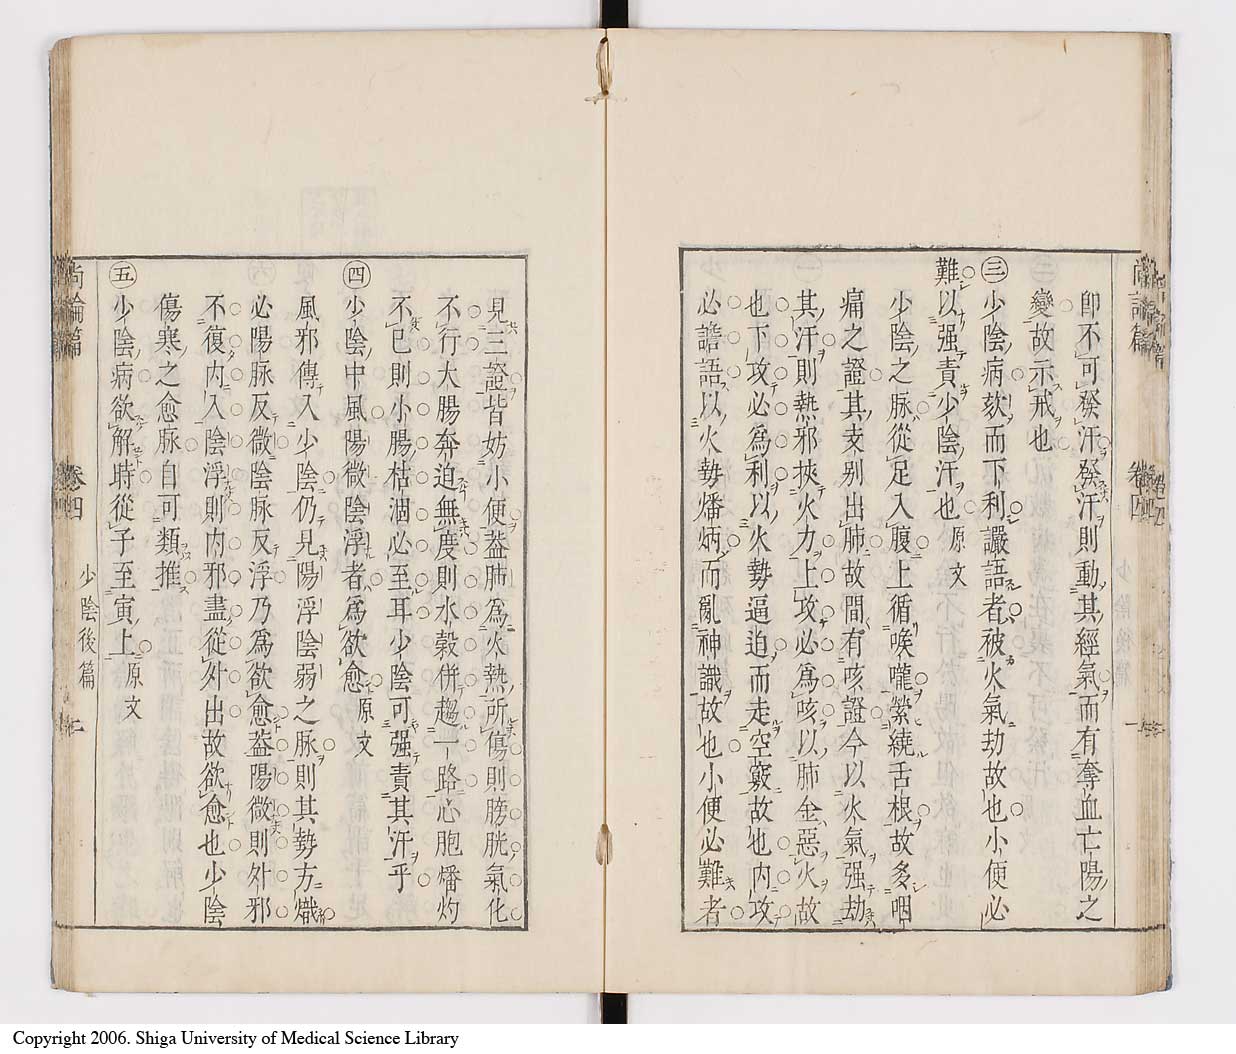 即不可發汗發汗則動其經氣而有奪血亡陽之
變故示戒也
㊂少陰病欬而下利讝語者被火氣劫故也小便必
難以强責少陰汗也 原文
少陰之脉從足入腹上循喉嚨縈繞舌根故多咽
痛之證其支别出肺故間有咳證今以火氣强劫
其汗則熱邪挾火力上攻必為咳以肺金惡火故
也下攻必為利以火勢逼迫而走空竅故也内攻
必譫語以火勢燔焫而亂神識故也小便必難者
見三證皆妨小便葢肺為火熱所傷則膀胱氣化
不行大腸奔迫無度則水穀併趨一路心胞燔灼
不已則小腸枯涸必至耳少陰可强責其汗乎
㊃少陰中風陽微陰浮者為欲愈 原文
風邪傳入少陰仍見陽浮陰弱之脉則其勢方熾
必陽脉反微陰脉反浮乃為欲愈葢陽微則外邪
不復内入陰浮則内邪盡從外出故欲愈也少陰
傷寒之愈脉自可類推
㊄少陰病欲解時從子至寅上 原文
尚論篇 卷四 少陰後篇
Copyright 2006. Shiga University of Medical Science Library